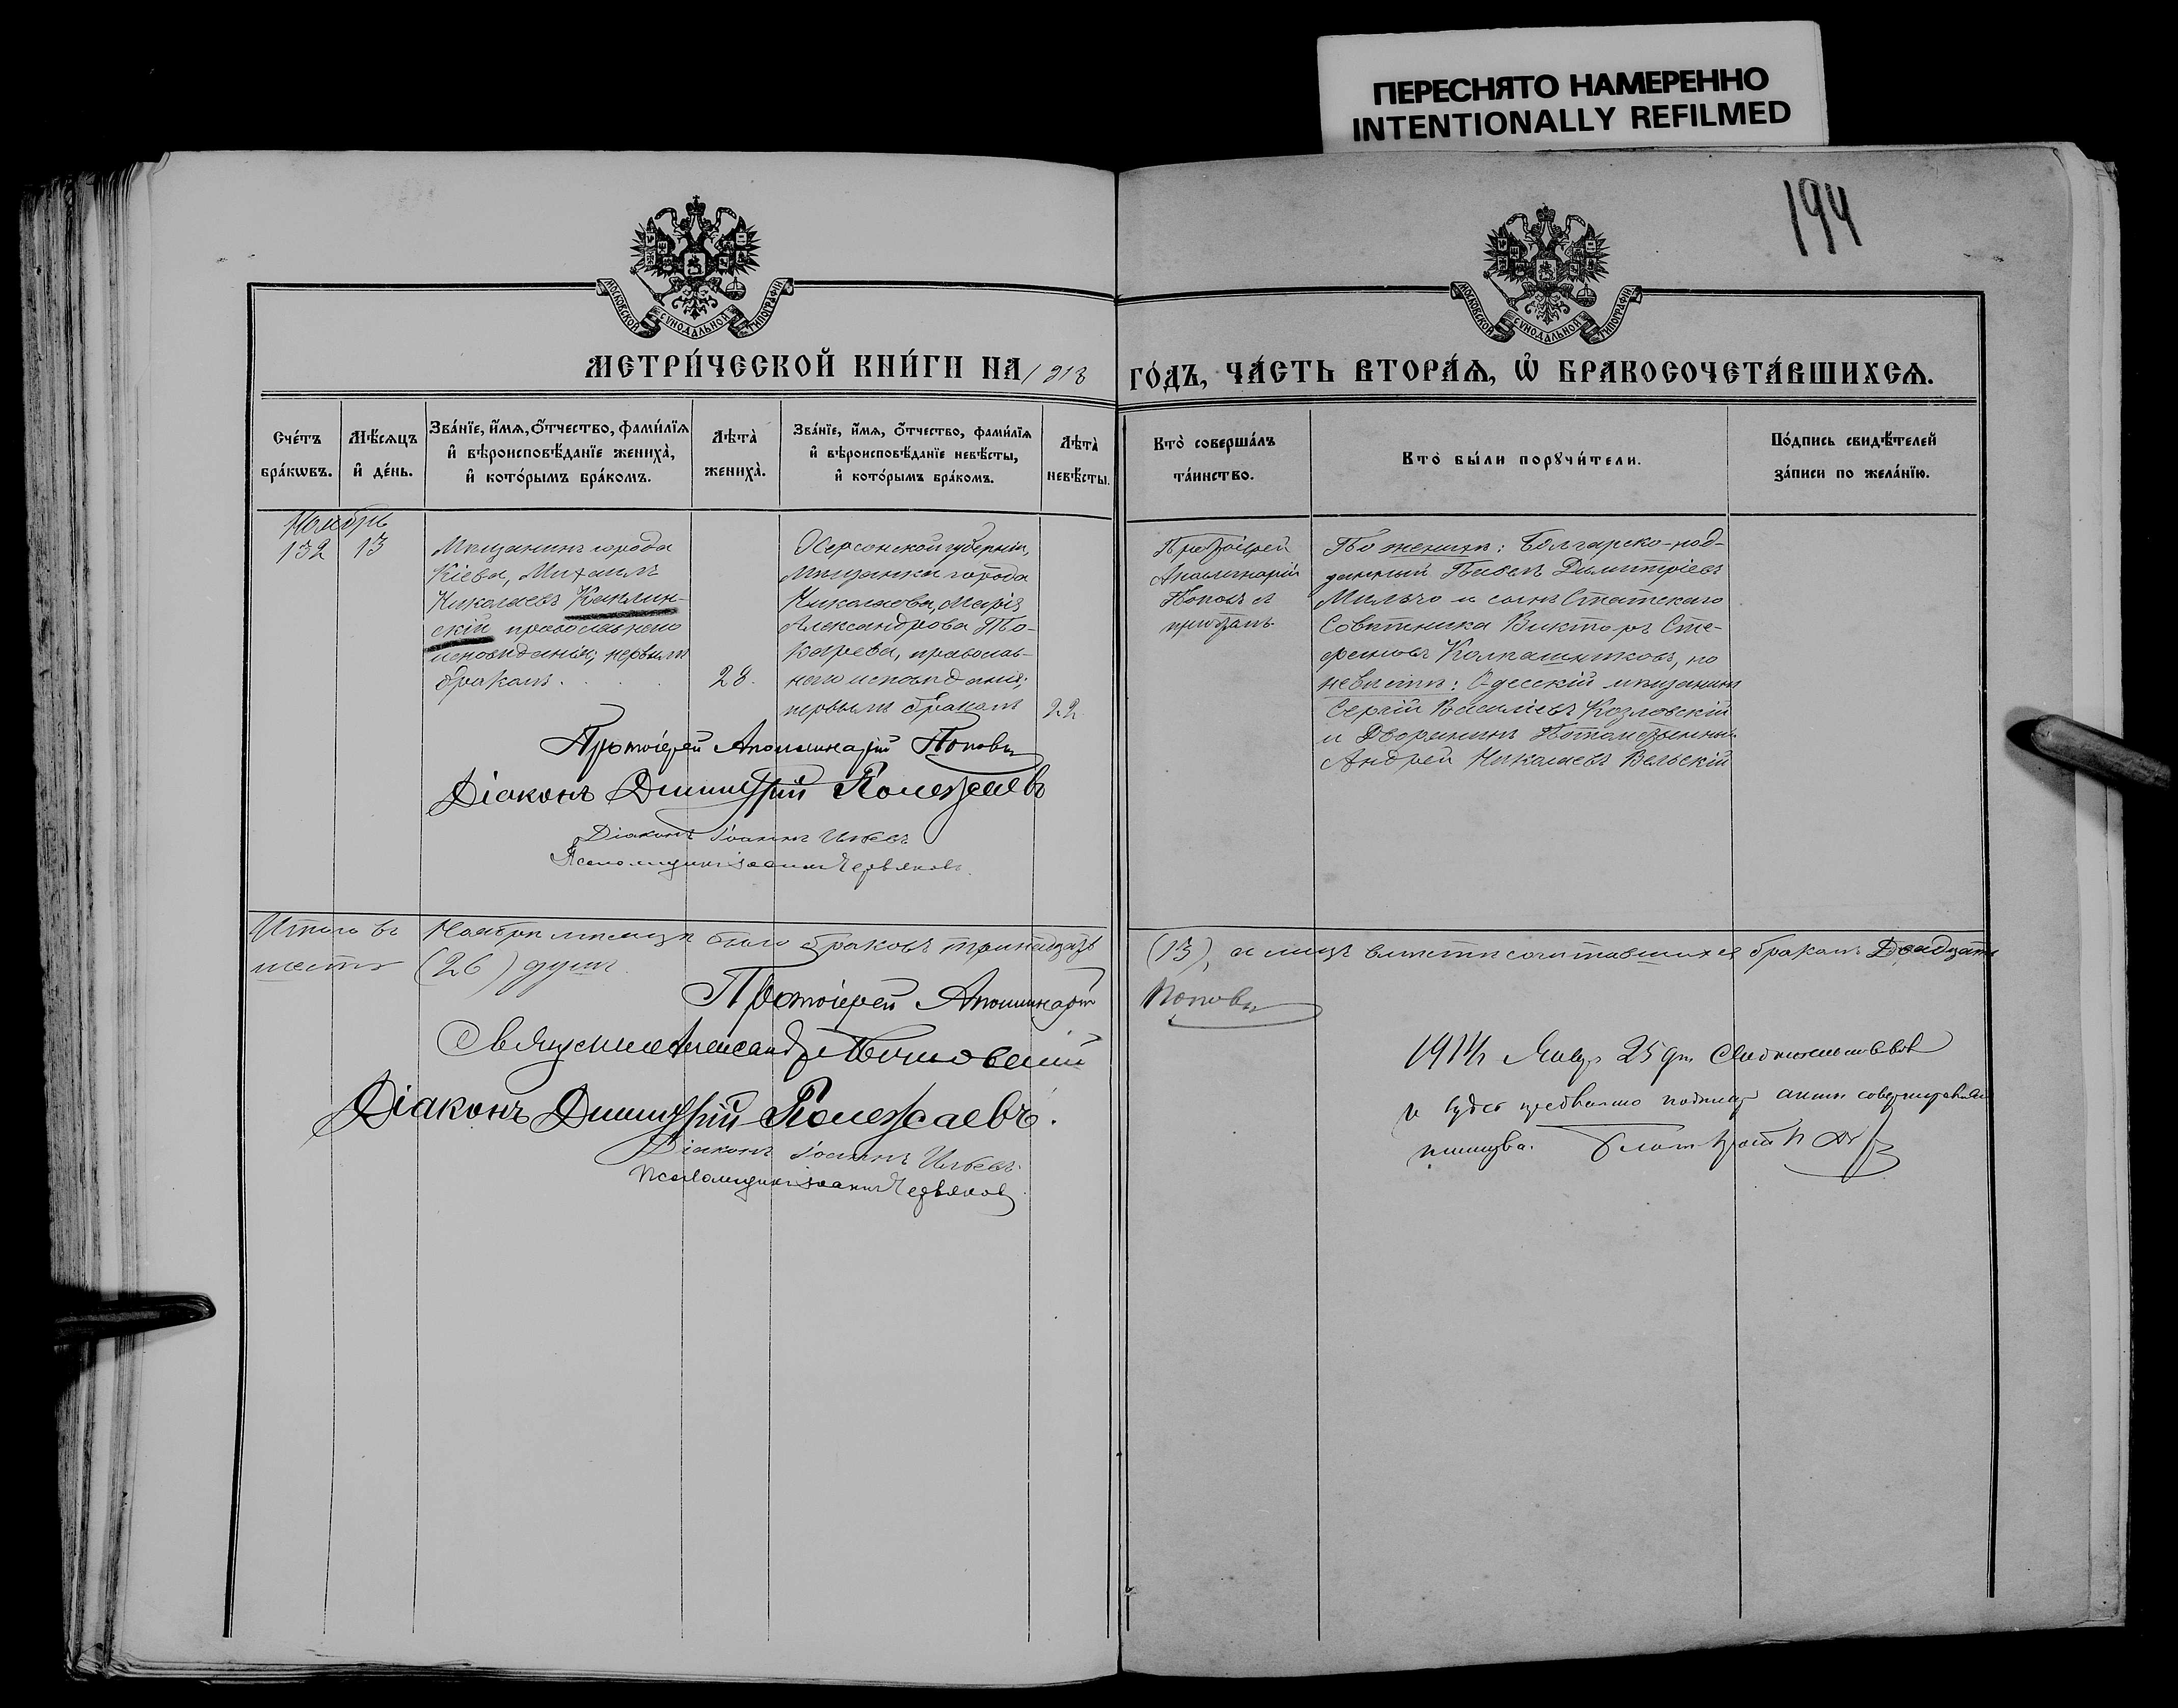 ПЕРЕСНЯТО НАМЕРЕННО
INTENTIONALLY REFILMED
194
МОСКОВСКОЙ СУНОДАЛЬНОЙ ТИПОГРАФІИ
МОСКОВСКОЙ СУНОДАЛЬНОЙ ТИПОГРАФІИ
МЕТРИ́ЧЕСКОЙ КНИ́ГИ НА 1913
ГО́ДЪ, ЧА́СТЬ ВТОРА́Ѧ, Ѽ БРАКОСОЧЕТА́ВШИХСѦ.
Сче́тъ
бра́кѡвъ.
Мѣ́сѧцъ
и҆ де́нь.
Зва́нїе, и҆́мѧ, ѻ҆́тчество, фами́лїѧ
и҆ вѣроисповѣ́данїе жениха̀,
и҆ кото́рымъ бра́комъ.
Лѣта̀
жениха̀.
Зва́нїе, и҆́мѧ, ѻ҆́тчество, фами́лїѧ
и҆ вѣроисповѣ́данїе невѣ́сты,
и҆ кото́рымъ бра́комъ.
Лѣта̀
невѣ́сты.
Кто̀ соверша́лъ
та́инство.
Кто̀ бы́ли порꙋчи́тели.
По́дпись свидѣ́телей
за́писи по жела́нїю.
Ноябрь
132 13
Мѣщанинъ города
Кіева, Михаилъ
Николаевъ Каплин-
скій православнаго
исповѣданія; первымъ
бракомъ.
28.
Херсонской губерніи,
мѣщанка города
Николаева, Марія
Александрова То-
карева, православ-
наго исповѣданія;
первымъ бракомъ
22
Протоіерей
Аполлинарій
Поповъ съ
причтомъ
По женихѣ: Болгарско-под-
данный Павелъ Димитріевъ
Мильчо и сынъ Статскаго
Совѣтника Викторъ Сте-
фановъ Колпашниковъ, по
невѣстѣ: Одесскій мѣщанинъ
Сергій Васильевъ Козловскій
и Дворянинъ Потомственный
Андрей Николаевъ Вельскій
Протоіерей Аполлинарій Поповъ
Діаконъ Димитрій Полежаевъ
Діаконъ Іоаннъ Ильевъ
Псаломщикъ Іоаннъ Червяковъ
Итого въ Ноябрѣ мѣсяцѣ было браковъ тринадцать
(13), а лицъ вмѣстѣ сочетавшихся бракомъ Двадцать
шесть (26) душъ.
Протоіерей Аполлинарій
Поповъ
Священникъ Александръ
Діаконъ Димитрій Полежаевъ.
Діаконъ Іоаннъ Ильевъ
Псаломщикъ Іоаннъ Червяковъ
1914 г. Янв. 25 дня